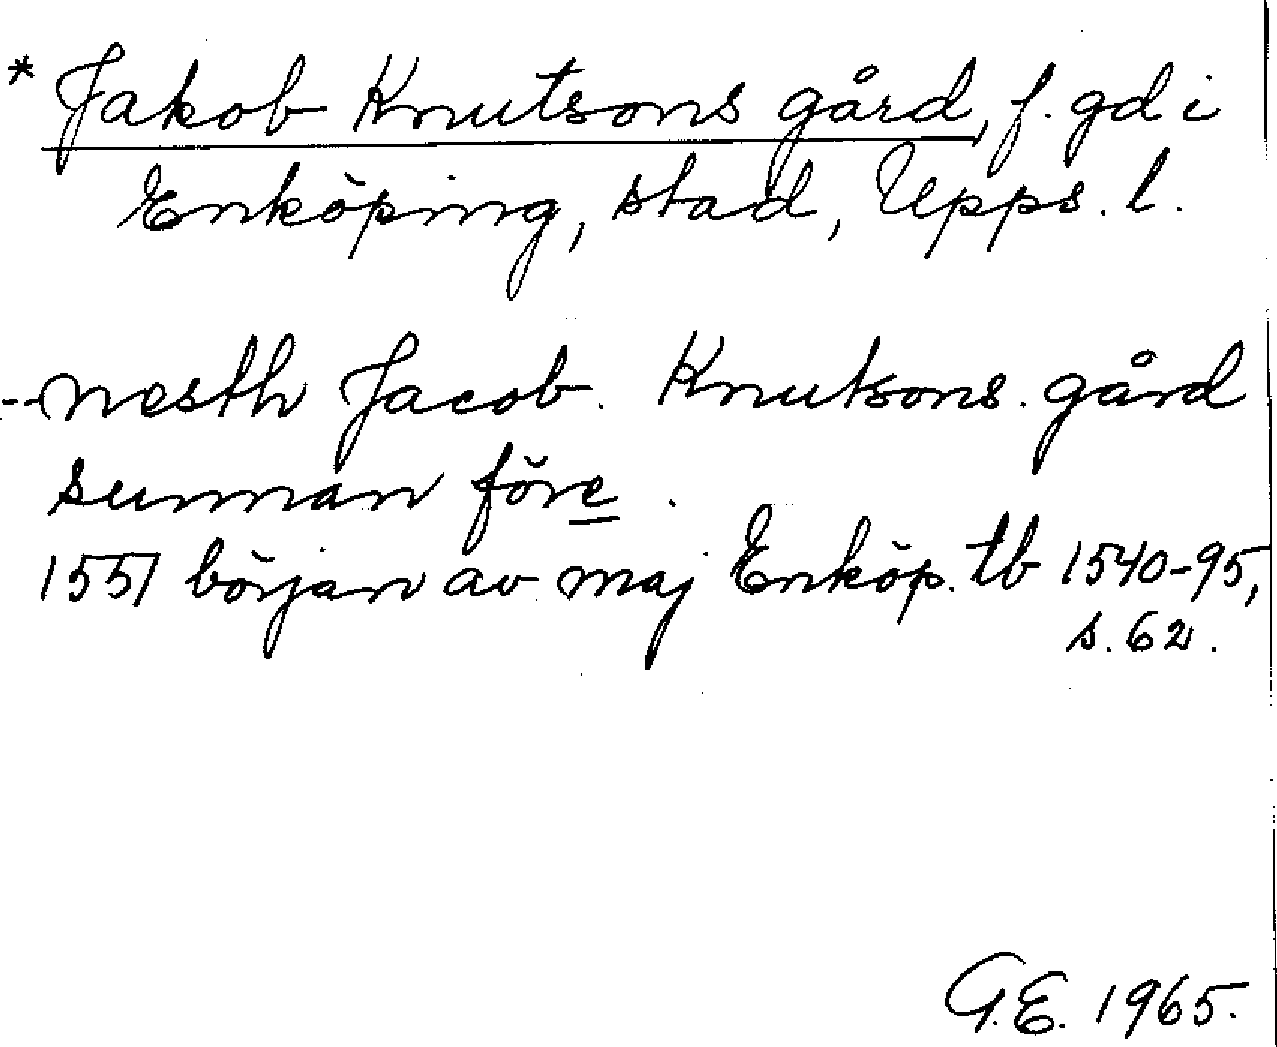 * Jakob Knutsons gård, f. gd i
Enköping, stad, Upps. l.
-- nesth Jacob. Knutsons. gård
sunnan före.
1557 början av maj Enköp. tb 1540-95,
s. 62.
G.E. 1965.